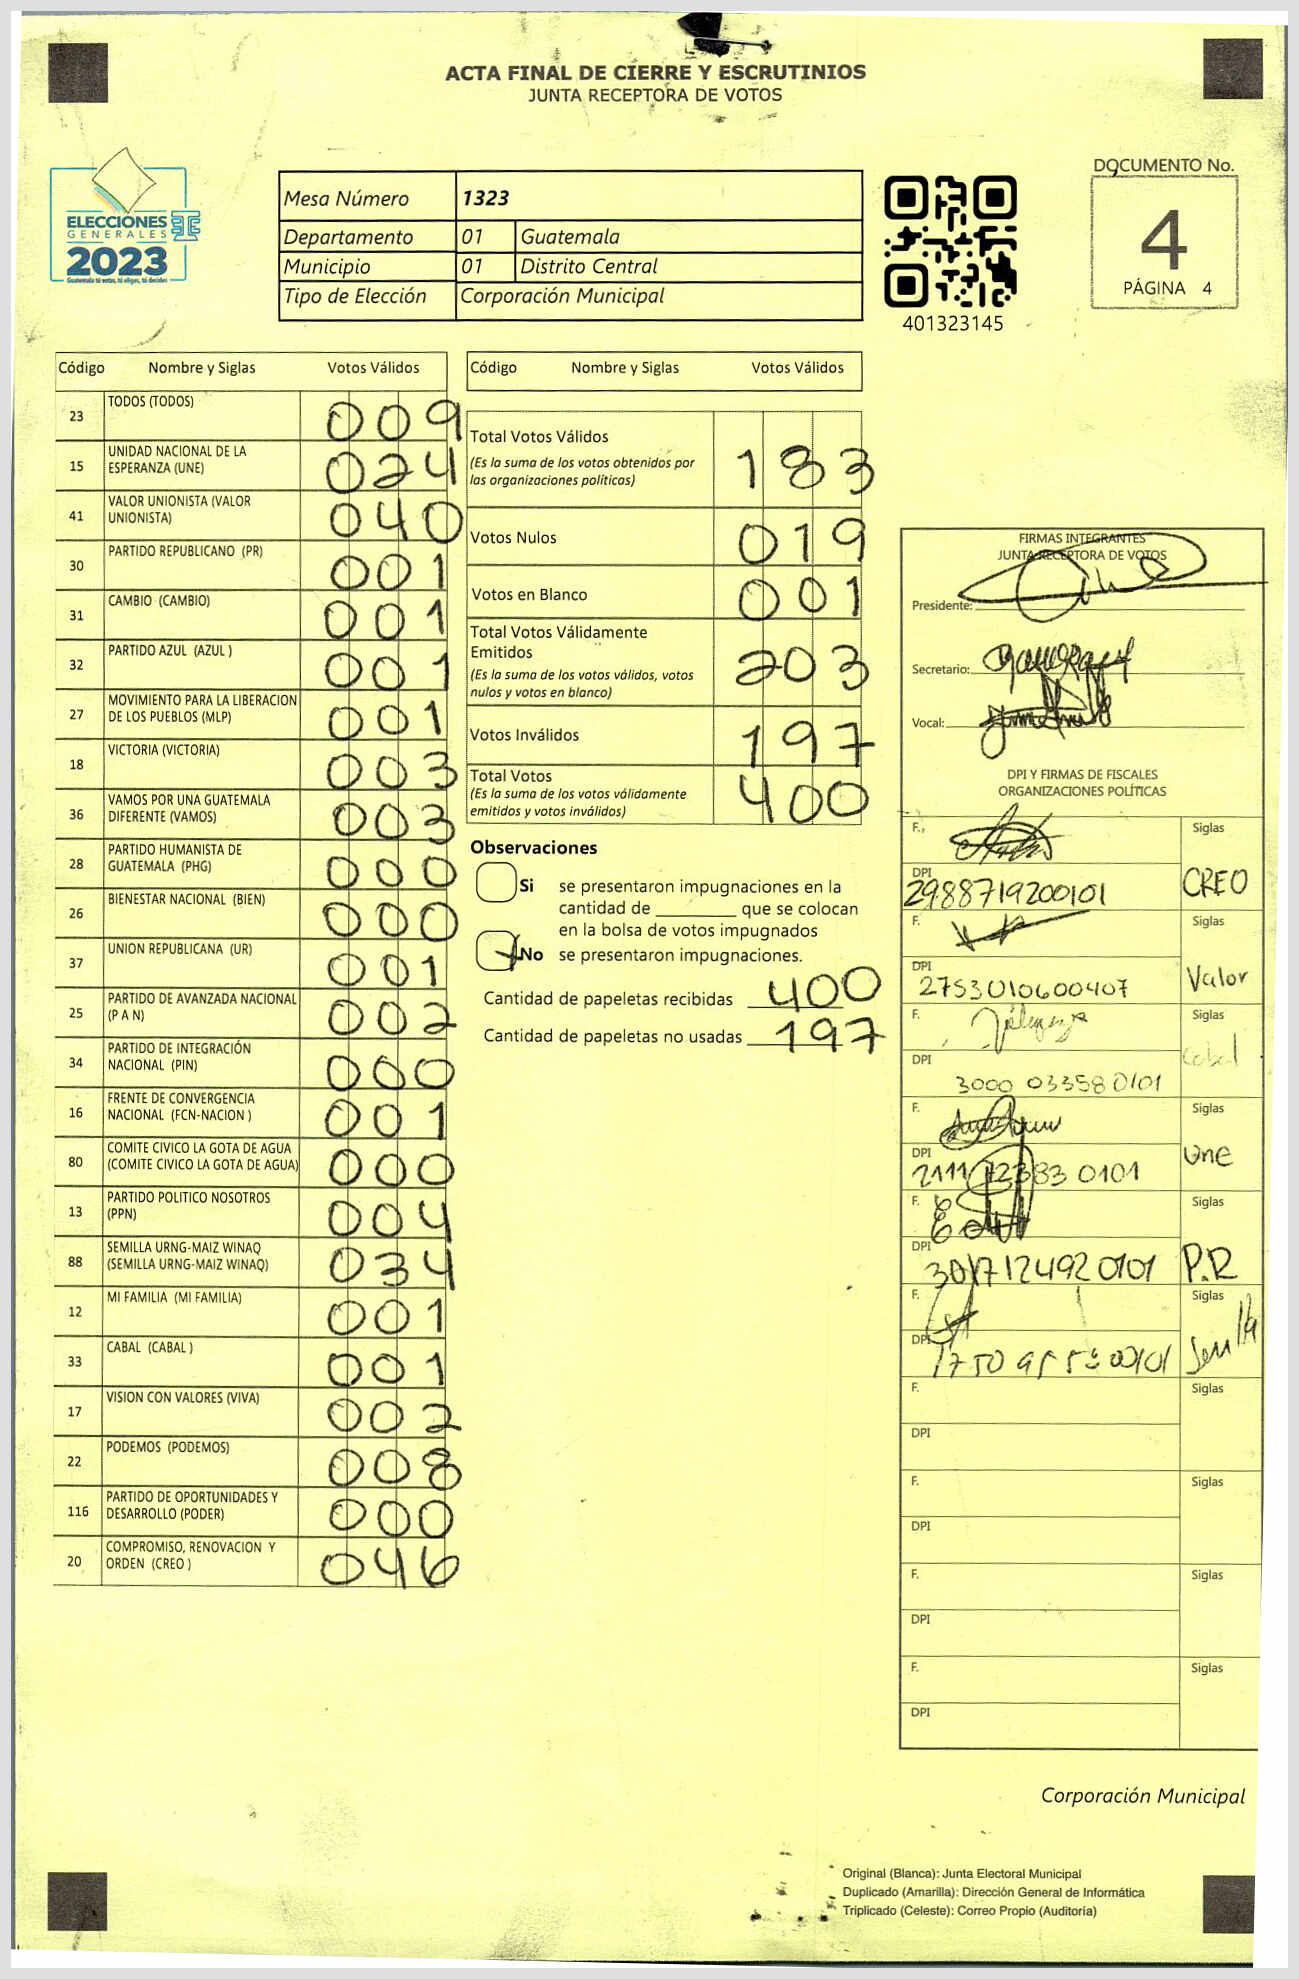 ACTA FINAL DE CIERRE Y ESCRUTINIOS
JUNTA RECEPTORA DE VOTOS
ELECCIONES
GENERALES
2023
Guatemala tú votas, tú eliges, tú decides
Mesa Número 1323
Departamento 01 Guatemala
Municipio 01 Distrito Central
Tipo de Elección Corporación Municipal
401323145
DOCUMENTO No.
4
PÁGINA 4
Código Nombre y Siglas Votos Válidos
23 TODOS (TODOS) 009
15 UNIDAD NACIONAL DE LA ESPERANZA (UNE) 024
41 VALOR UNIONISTA (VALOR UNIONISTA) 040
30 PARTIDO REPUBLICANO (PR) 001
31 CAMBIO (CAMBIO) 001
32 PARTIDO AZUL (AZUL ) 001
27 MOVIMIENTO PARA LA LIBERACION DE LOS PUEBLOS (MLP) 001
18 VICTORIA (VICTORIA) 003
36 VAMOS POR UNA GUATEMALA DIFERENTE (VAMOS) 003
28 PARTIDO HUMANISTA DE GUATEMALA (PHG) 000
26 BIENESTAR NACIONAL (BIEN) 000
37 UNION REPUBLICANA (UR) 001
25 PARTIDO DE AVANZADA NACIONAL (P A N) 002
34 PARTIDO DE INTEGRACIÓN NACIONAL (PIN) 000
16 FRENTE DE CONVERGENCIA NACIONAL (FCN-NACION ) 001
80 COMITE CIVICO LA GOTA DE AGUA (COMITE CIVICO LA GOTA DE AGUA) 000
13 PARTIDO POLITICO NOSOTROS (PPN) 004
88 SEMILLA URNG-MAIZ WINAQ (SEMILLA URNG-MAIZ WINAQ) 034
12 MI FAMILIA (MI FAMILIA) 001
33 CABAL (CABAL ) 001
17 VISION CON VALORES (VIVA) 002
22 PODEMOS (PODEMOS) 008
116 PARTIDO DE OPORTUNIDADES Y DESARROLLO (PODER) 000
20 COMPROMISO, RENOVACION Y ORDEN (CREO ) 046
Código Nombre y Siglas Votos Válidos
Total Votos Válidos 183
(Es la suma de los votos obtenidos por
las organizaciones políticas)
Votos Nulos 019
Votos en Blanco 001
Total Votos Válidamente
Emitidos 203
(Es la suma de los votos válidos, votos
nulos y votos en blanco)
Votos Inválidos 197
Total Votos 400
(Es la suma de los votos válidamente
emitidos y votos inválidos)
Observaciones
Si se presentaron impugnaciones en la
cantidad de ________ que se colocan
en la bolsa de votos impugnados
No se presentaron impugnaciones.
Cantidad de papeletas recibidas 400
Cantidad de papeletas no usadas 197
FIRMAS INTEGRANTES
JUNTA RECEPTORA DE VOTOS
Presidente:
Secretario:
Vocal:
DPI Y FIRMAS DE FISCALES
ORGANIZACIONES POLÍTICAS
F. Siglas
DPI 2988719200101 CREO
F. Siglas
DPI 2753010600407 Valor
F. Siglas
DPI 3000 03358 0101 Cabal
F. Siglas
DPI 2111 0101 Une
F. Siglas
DPI 3017124920101 P.R
F. Siglas
DPI Semilla
F. Siglas
DPI
F. Siglas
DPI
F. Siglas
DPI
F. Siglas
DPI
Corporación Municipal
Original (Blanca): Junta Electoral Municipal
Duplicado (Amarilla): Dirección General de Informática
Triplicado (Celeste): Correo Propio (Auditoria)